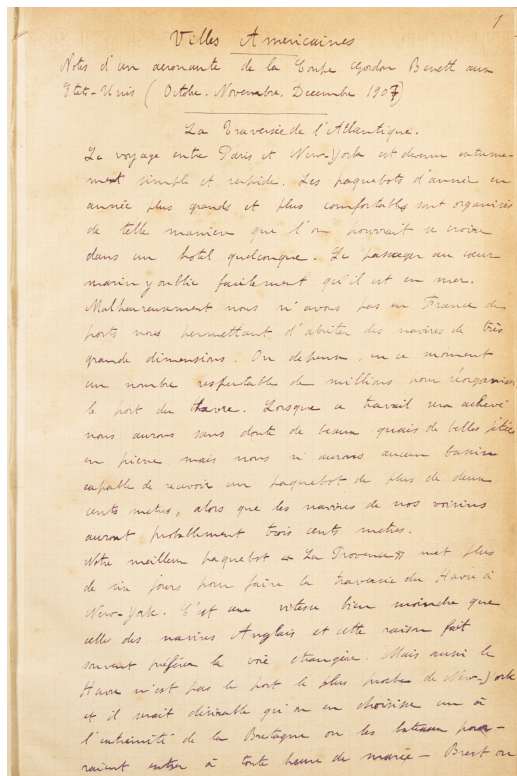 1
Villes Américaines
Notes d'un aéronaute de la Coupe Gordon Benett aux
Etats-Unis (Octobre. Novembre. Decembre 1907)
La Traversée de l'Atlantique.
Le voyage entre Paris et New-York est devenu extreme-
ment simple et rapide. Les paquebots d'année en
année plus grands et plus confortables sont organisés
de telle manière que l'on pourrait se croire
dans un hotel quelconque. Le passager au cœur
marin y oublie facilement qu'il est en mer.
Malheureusement nous n'avons pas en France de
ports nous permettant d'abriter des navires de très
grande dimensions. On dépense en ce moment
un nombre respectable de millions pour réorganiser
le port du Havre. Lorsque ce travail sera achevé
nous aurons sans doute de beaux quais de belles jetées
en pierre mais nous n'aurons aucun bassin
capable de recevoir un paquebot de plus de deux
cents metres, alors que les navires de nos voisins
auront probablement trois cents metres.
Notre meilleur paquebot « La Provence » met plus
de six jours pour faire la traversée du Havre à
New-York. C'est une vitesse bien moindre que
celle des navires Anglais et cette raison fait
souvent préférer la voie étrangère. Mais aussi le
Havre n'est pas le port le plus proche de New-York
et il serait désirable qu'on en choisisse un à
l'extremité de la Bretagne ou les bateaux pour-
raient entrer à toute heure de marée - Brest ou